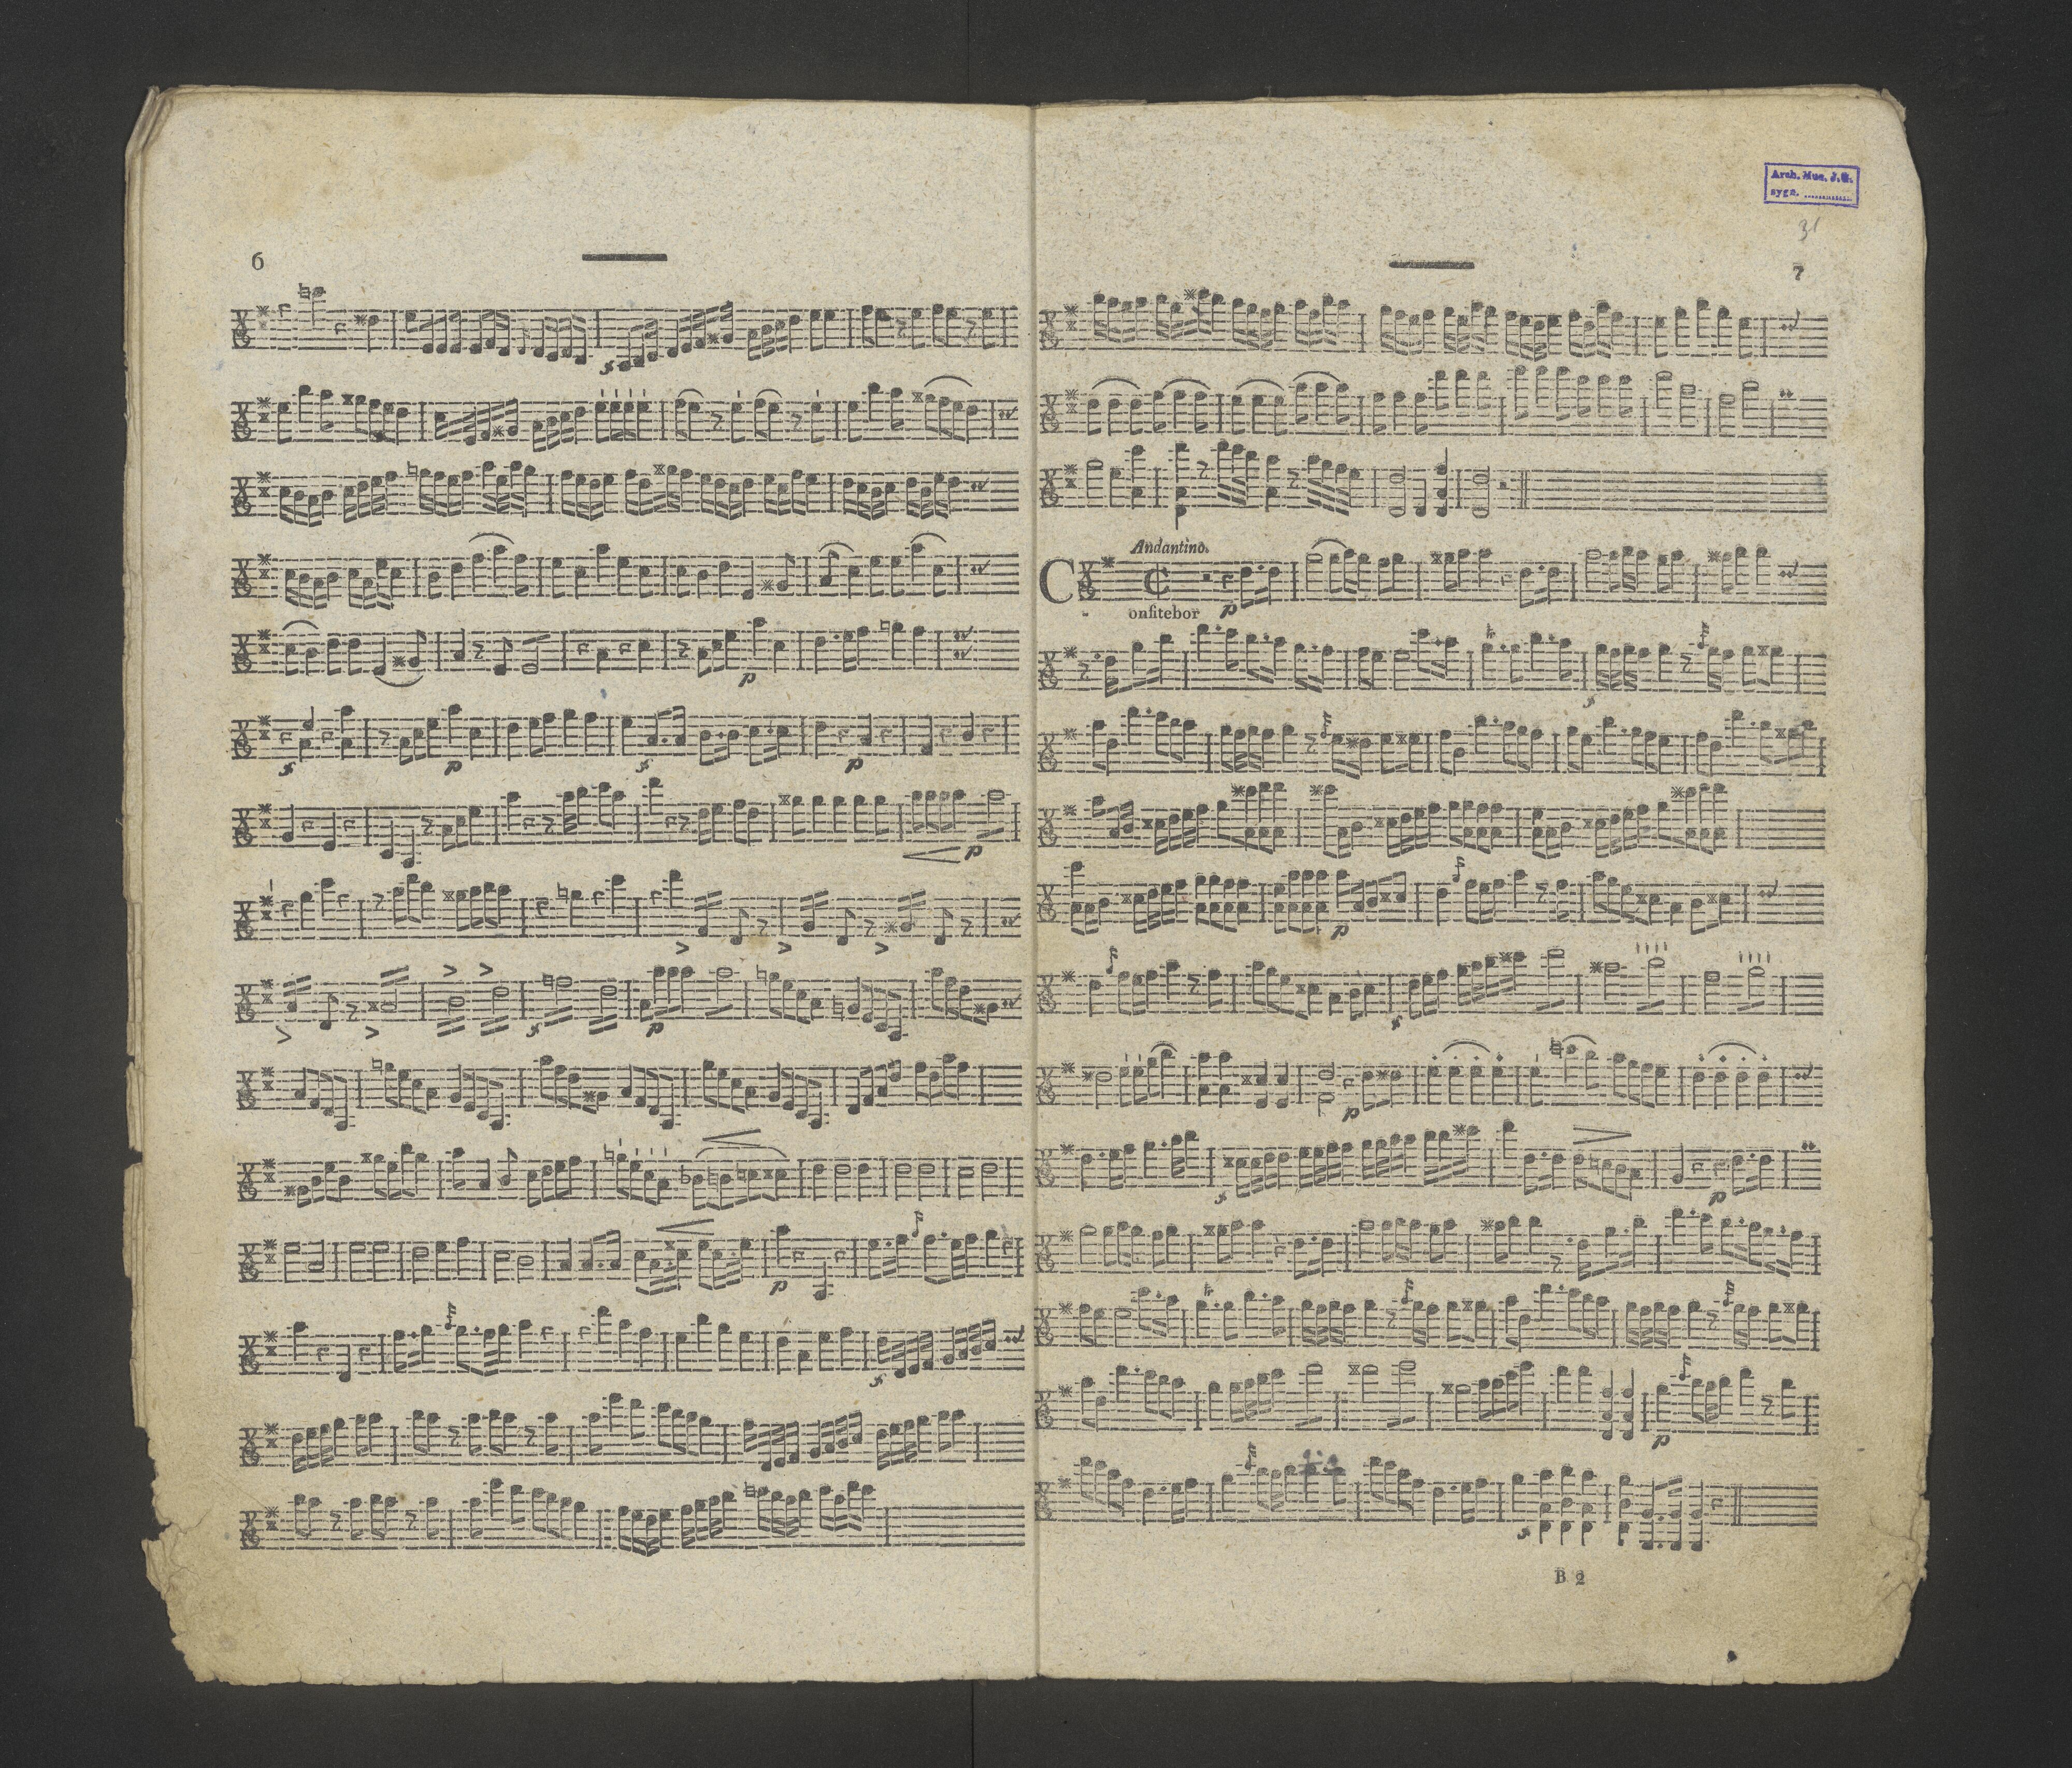 6
p
p
p
p
p
p
p
Arch. Mus. J. G.
sygn. ..............
31
7
Andantino.
Confitebor
p
p
p
p
p
B 2